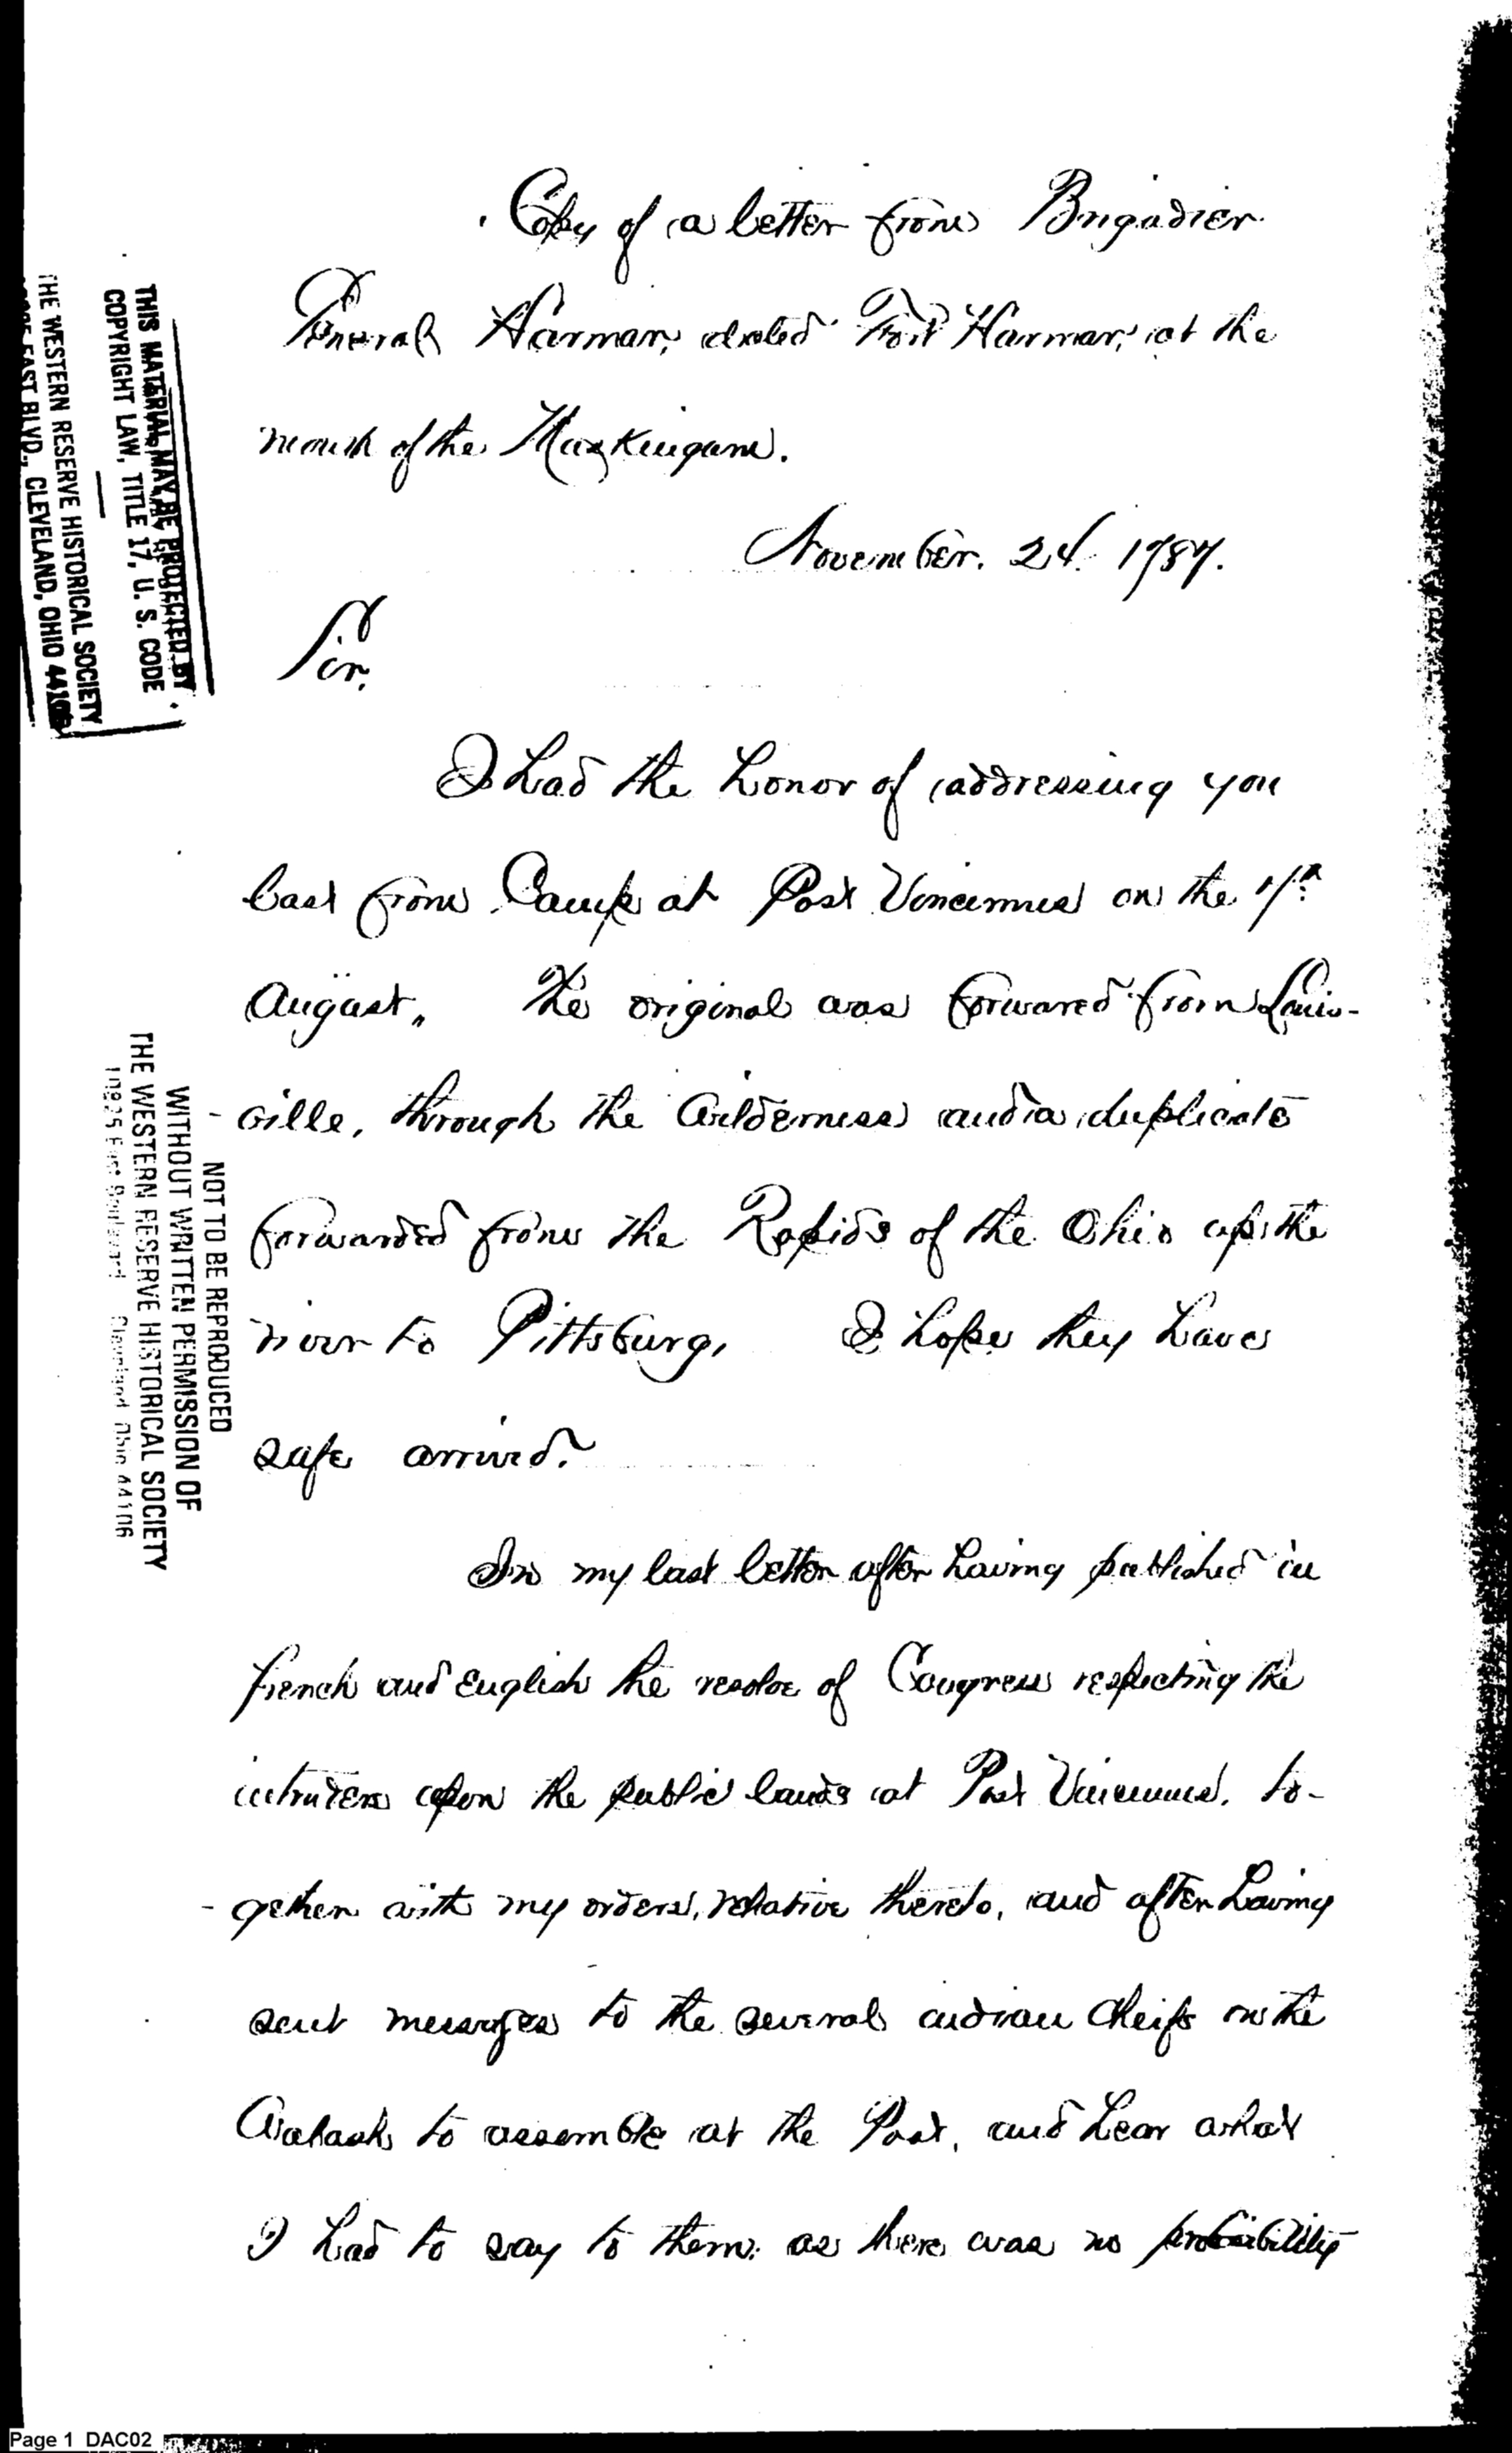 Copy of a letter from Brigadier
General Harmar, dated Fort Harmar, at the
mouth of the Muskingum.
November. 24. 1787.
Sir,
I had the honor of addressing you
last from Camp at Post Vincennes on the 7th
August. The original was forwared from Louis-
-ville, through the Wilderness and a duplicate
forwarded from the Rapids of the Ohio up the
river to Pittsburg, I hope they have
safe arrived.
In my last letter after having published in
french and English the resolve of Congress respecting the
intruders upon the public lands at Post Vincennes, to-
-gether with my orders, relative thereto, and after having
sent messages to the several indian Cheifs on the
Wabash to assemble at the Post, and hear what
I had to say to them: as there was no probability
THIS MATERIAL MAY BE PROTECTED BY
COPYRIGHT LAW, TITLE 17, U. S. CODE
THE WESTERN RESERVE HISTORICAL SOCIETY
EAST BLVD., CLEVELAND, OHIO 44106
NOT TO BE REPRODUCED
WITHOUT WRITTEN PERMISSION OF
THE WESTERN RESERVE HISTORICAL SOCIETY
10825 East Boulevard Cleveland Ohio 44106
Page 1 DAC02